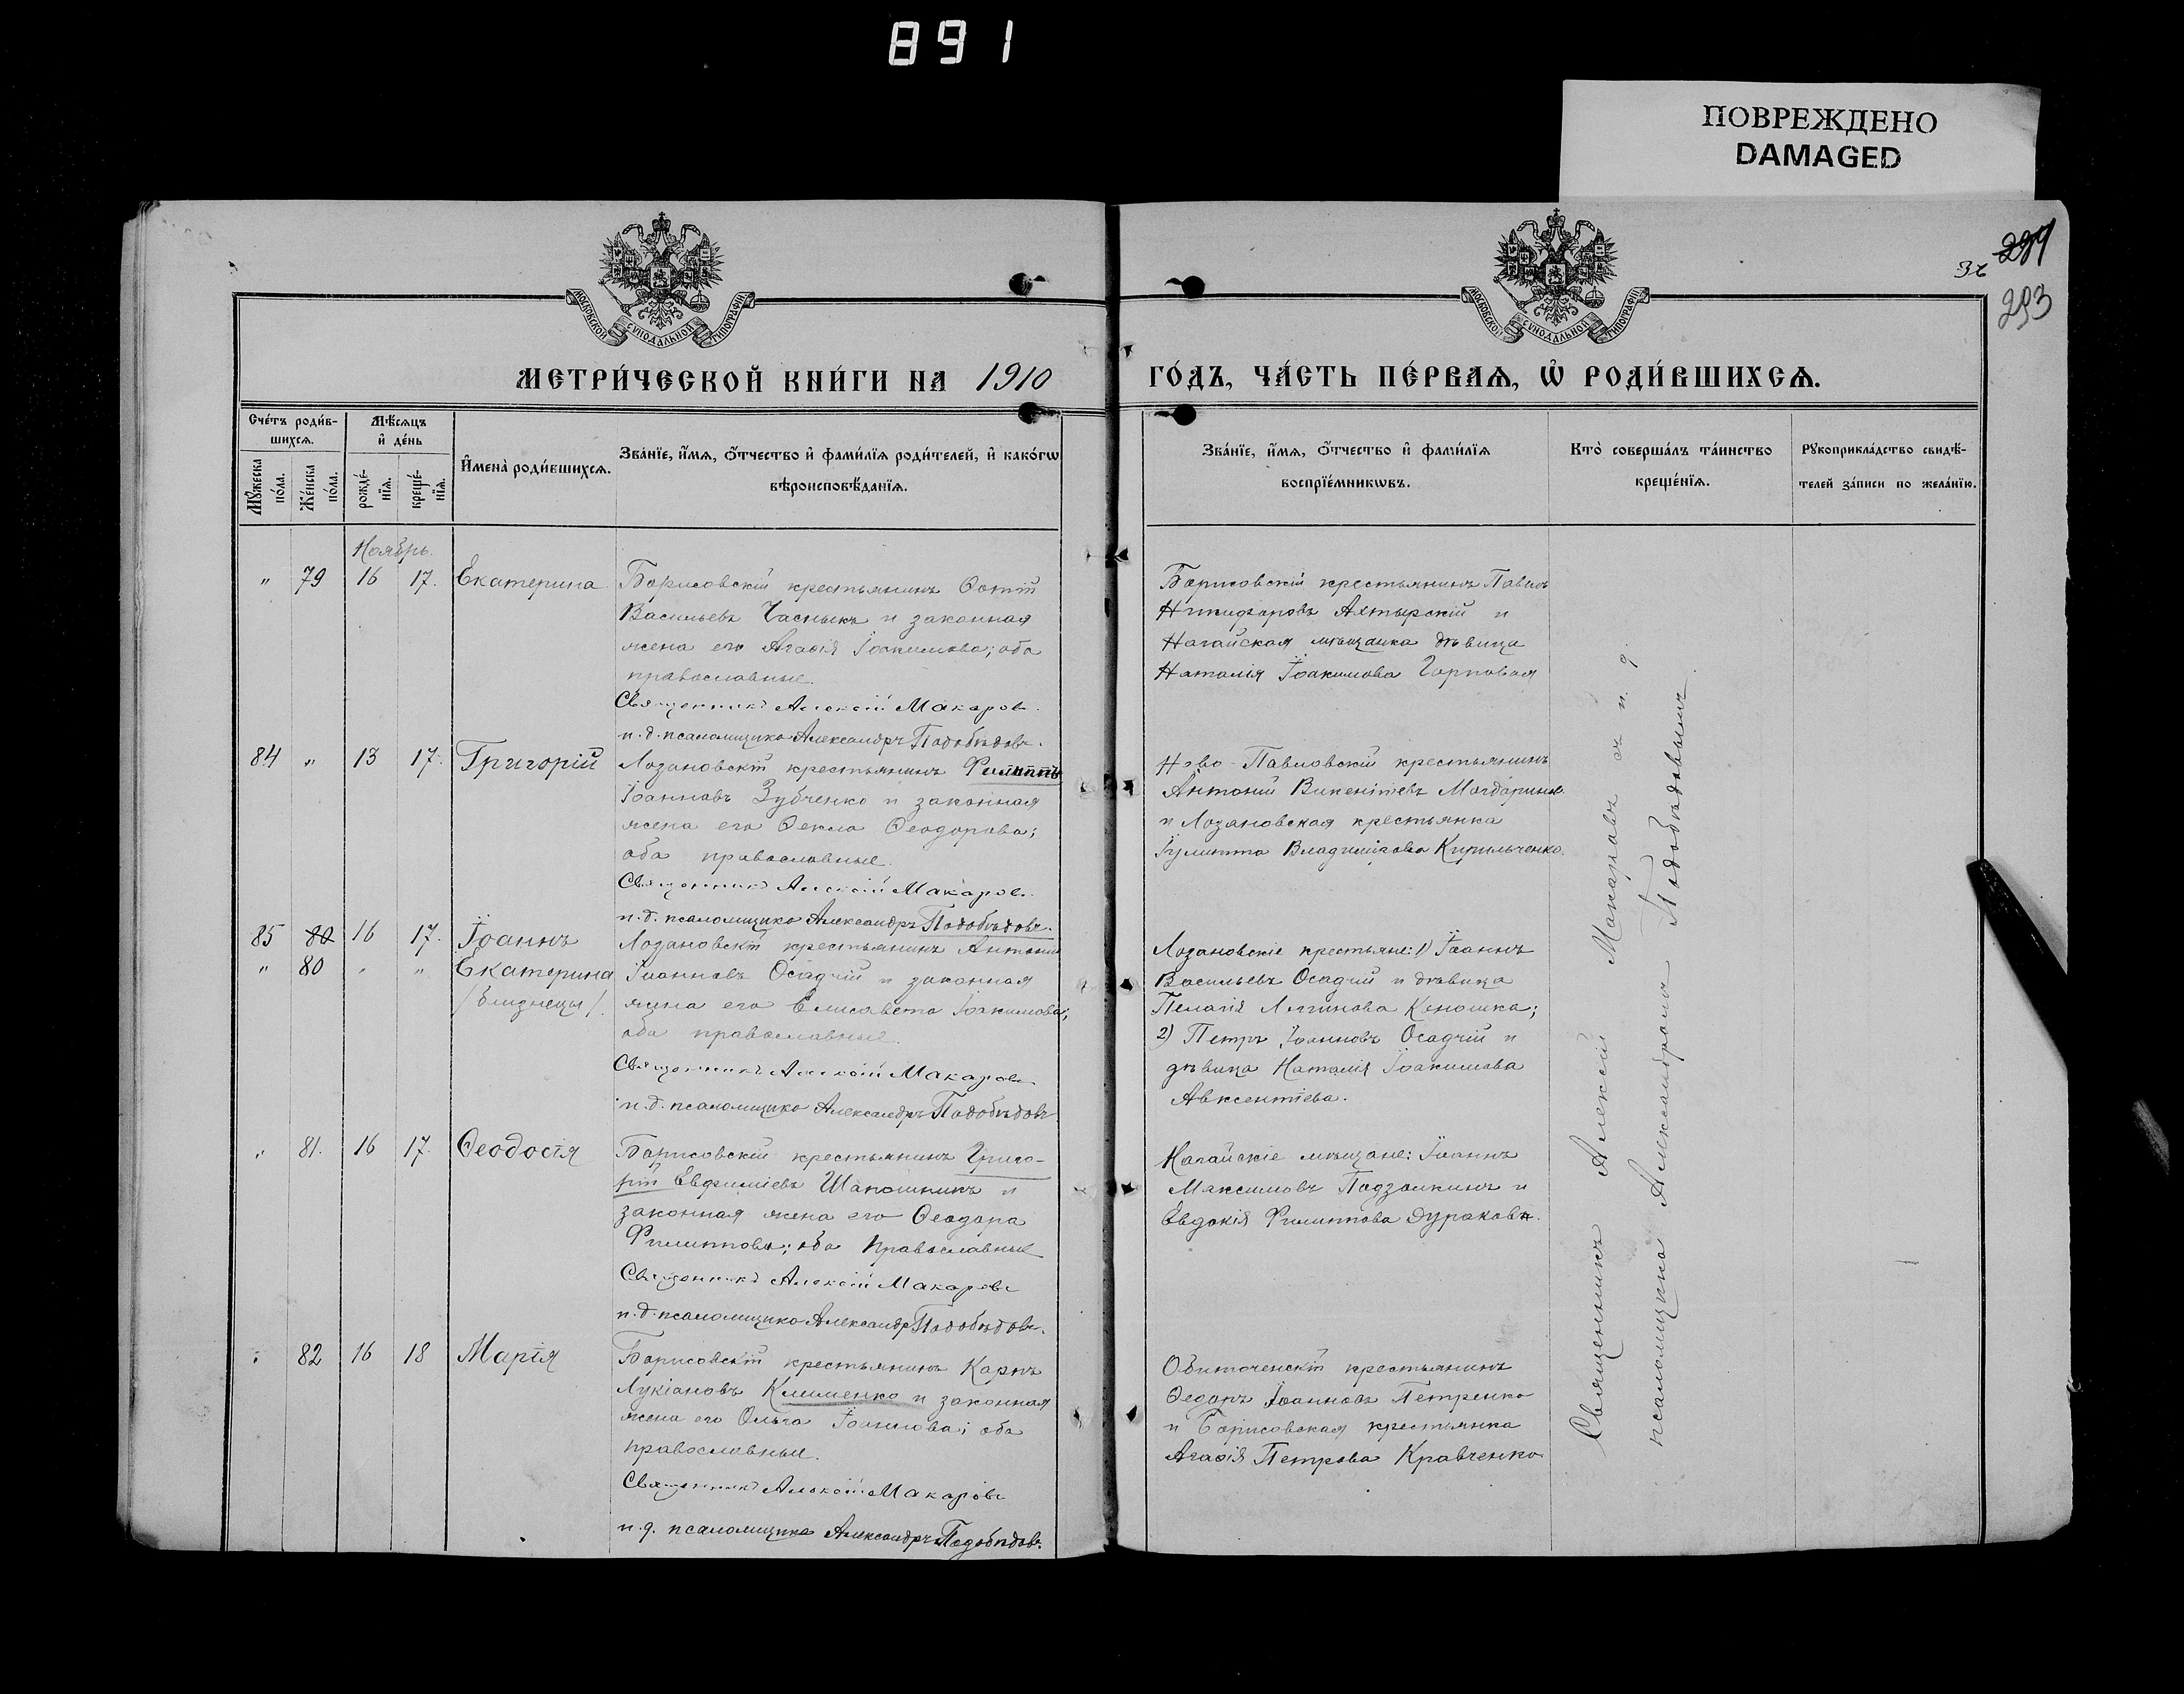 891
ПОВРЕЖДЕНО
DAMAGED
МОСКОВСКОЙ СУНОДАЛЬНОЙ ТИПОГРАФІИ
МОСКОВСКОЙ СУНОДАЛЬНОЙ ТИПОГРАФІИ
293
МЕТРИ́ЧЕСКОЙ КНИ́ГИ НА 1910 ГО́ДЪ, ЧА́СТЬ ПЕ́РВАѦ, Ѡ РОДИ́ВШИХСѦ.
Сче́тъ роди́в-
шихсѧ.
Мѣ́сѧцъ
и де́нь
Мꙋ́жеска по́ла.
Же́нска по́ла.
рожде́-
нїѧ.
креще́-
нїѧ.
Имена̀ роди́вшихсѧ.
Зва́нїе, и́мѧ, о́тчество и фами́лїѧ роди́телей, и како́гѡ
вѣроисповѣ́данїѧ.
Зва́нїе, и́мѧ, о́тчество и фами́лїѧ
воспрїе́мникѡвъ.
Кто̀ соверша́лъ та́инство
креще́нїѧ.
Рꙋкоприкла́дство свидѣ́-
телей за́писи по жела́нїю.
Ноябрь.
" 79 16 17. Екатерина
Борисовскій крестьянинъ Фотій
Васильевъ Часныкъ и законная
жена его Агаѳія Іоакимова; оба
православные.
Священникъ Алексій Макаровъ.
и. д. псаломщика Александръ Подобѣдовъ.
Борисовскій крестьянинъ Павелъ
Никифоровъ Ахтырскій и
Нагайская мѣщанка дѣвица
Наталія Іоакимова Горповая
84 " 13 17. Григорій
Лозановскій крестьянинъ Филиппъ
Іоанновъ Зубченко и законная
жена его Ѳекла Ѳеодорова;
оба православные.
Священникъ Алексій Макаровъ.
и. д. псаломщика Александръ Подобѣдовъ.
Ново-Павловскій крестьянинъ
Антоній Викентіевъ
и Лозановская крестьянка
Іулитта Владимірова Кирильченко.
85 80 16 17. Іоаннъ
" 80 " " Екатерина
/близнецы/.
Лозановскій крестьянинъ Антоній
Іоанновъ Осадчій и законная
жена его Елисавета Іоакимова;
оба православные.
Священникъ Алексій Макаровъ.
и. д. псаломщика Александръ Подобѣдовъ
Лозановскіе крестьяне: 1) Іоаннъ
Васильевъ Осадчій и дѣвица
Пелагія Логгинова Коношка;
2) Петръ Іоанновъ Осадчій и
дѣвица Наталія Іоакимова
Авксентіева.
" 81. 16 17. Ѳеодосія
Борисовскій крестьянинъ Григо-
рій Евфиміевъ Шапошникъ и
законная жена его Ѳеодора
Филиппова; оба православные
Священникъ Алексій Макаровъ
и. д. псаломщика Александръ Подобѣдовъ.
Нагайскіе мѣщане: Іоаннъ
Максимовъ Подзолкинъ и
Евдокія Филиппова Дуракова.
" 82 16 18 Марія
Борисовскій крестьянинъ Карпъ
Лукіановъ Клименко и законная
жена его Ольга Іоаннова; оба
православные.
Священникъ Алексій Макаровъ
и. д. псаломщика Александръ Подобѣдовъ.
Обиточенскій крестьянинъ
Ѳедоръ Іоанновъ Петренко
и Борисовская крестьянка
Агаѳія Петрова Кравченко
Священникъ Алексій Макаровъ съ и. д.
псаломщика Александромъ Подобѣдовымъ.